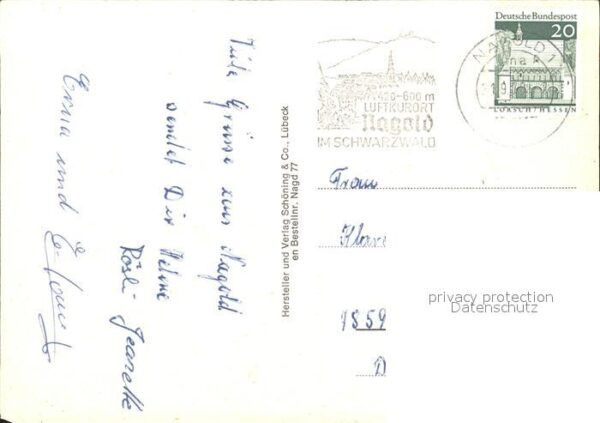 Viele Grüsse aus Nagold
sendet Dir Helene
Rösli Jeanette
Erna und
Hersteller und Verlag Schöning & Co., Lübeck
en Bestellnr. Nagd 77
420-600 m
LUFTKURORT
Nagold
IM SCHWARZWALD
NAGOLD 1
Deutsche Bundespost
20
LORSCH/HESSEN
Frau
Klara
7559
D
privacy protection
Datenschutz